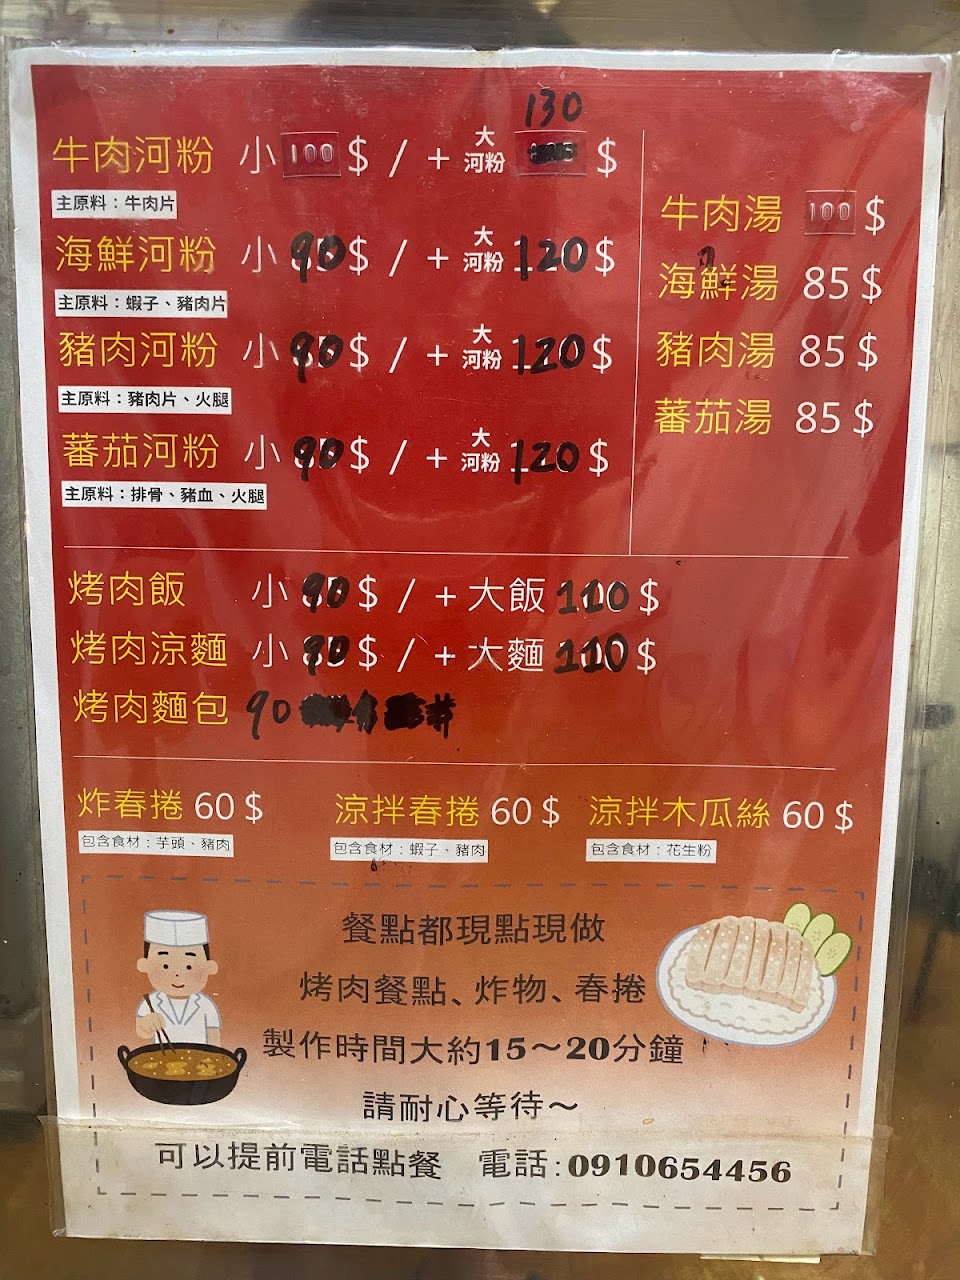 牛肉河粉 小 100 $ / + 大河粉 130 $
主原料：牛肉片
海鮮河粉 小 90 $ / + 大河粉 120 $
主原料：蝦子、豬肉片
豬肉河粉 小 90 $ / + 大河粉 120 $
主原料：豬肉片、火腿
蕃茄河粉 小 90 $ / + 大河粉 120 $
主原料：排骨、豬血、火腿
牛肉湯 100 $
海鮮湯 85 $
豬肉湯 85 $
蕃茄湯 85 $
烤肉飯 小 90 $ / + 大飯 110 $
烤肉涼麵 小 90 $ / + 大麵 110 $
烤肉麵包 90
炸春捲 60 $
包含食材：芋頭、豬肉
涼拌春捲 60 $
包含食材：蝦子、豬肉
涼拌木瓜絲 60 $
包含食材：花生粉
餐點都現點現做
烤肉餐點、炸物、春捲
製作時間大約15～20分鐘
請耐心等待～
可以提前電話點餐 電話:0910654456